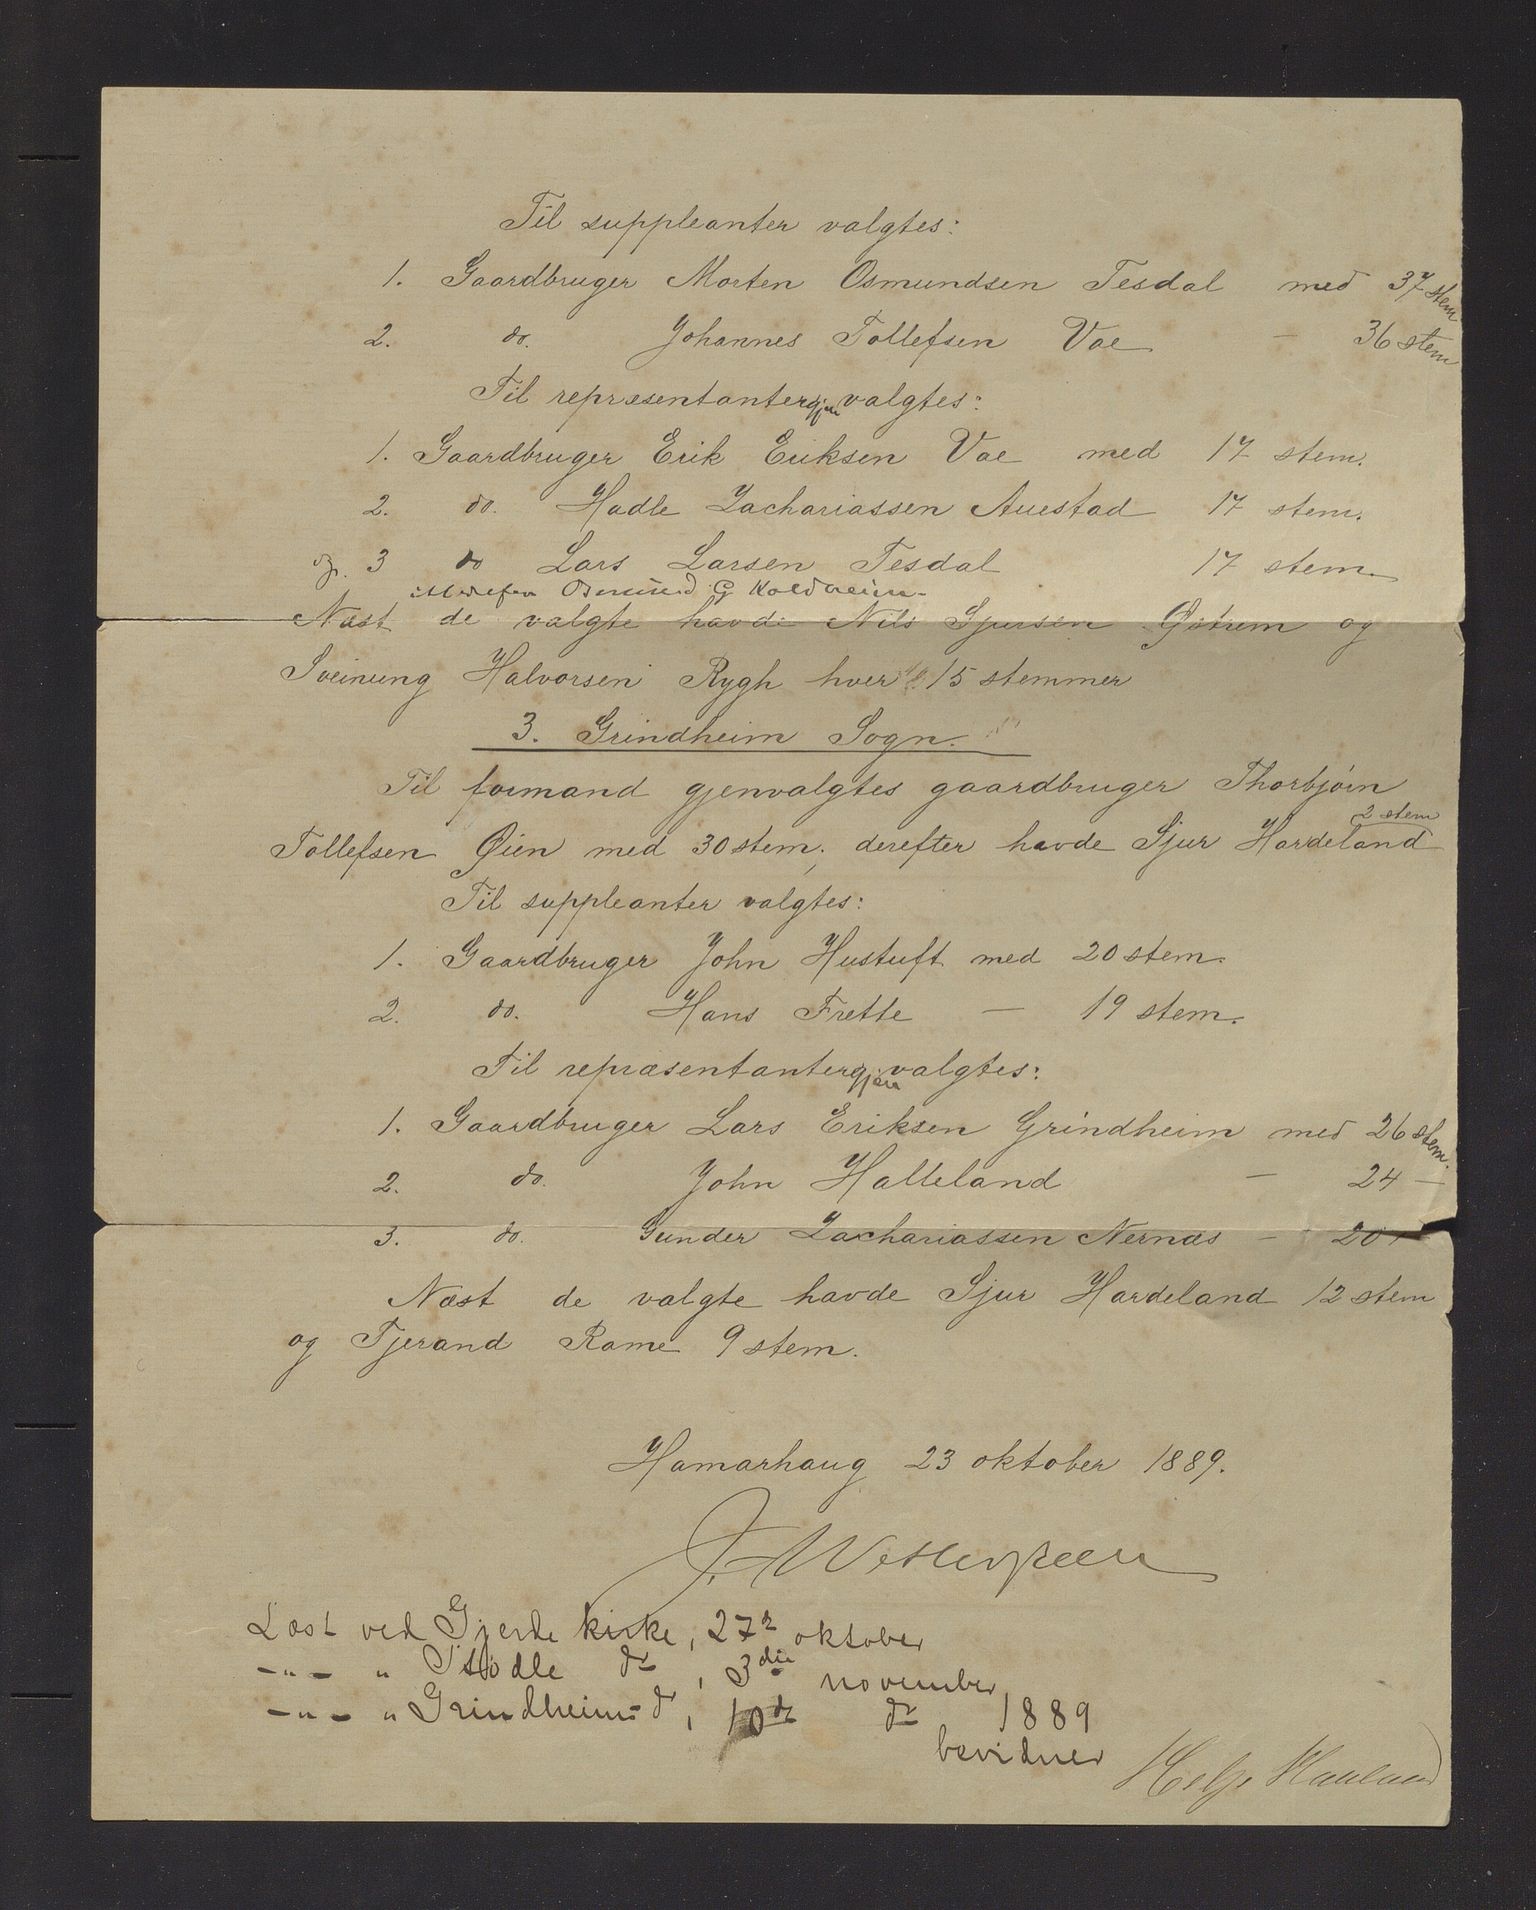 Til suppleanter valgtes:
1. Gaardbruger Morten Osmundsen Tesdal med 37 stem
2. do. Johannes Tollefsen Vae — 36 stem
Til repræsentanter gjenvalgtes:
1. Gaardbruger Erik Eriksen Vae med 17 stem.
2. do. Hadle Zachariassen Auestad 17 stem.
3 do Lars Larsen Tesdal 17 stem.
Osmund G Koldheim
Næst de valgte havde Nils Sjursen Østrem og
Sveinung Halvorsen Rygh hver 15 stemmer
3. Grindheim Sogn.
Til formand gjenvalgtes gaardbruger Thorbjørn
Tollefsen Øien med 30 stem; derefter havde Sjur Hardeland 2 stem
Til suppleanter valgtes:
1. Gaardbruger John Hustuft med 20 stem.
2. do. Hans Frette — 19 stem.
Til repræsentanter gjenvalgtes:
1. Gaardbruger Lars Eriksen Grindheim med 26 stem.
2. do. John Halleland — 24 —
3. do. Gunder Zachariassen Nernæs — 20 —
Næst de valgte havde Sjur Hardeland 12 stem
og Tjerand Rame 9 stem.
Hamarhaug 23 oktober 1889.
Læst ved Gjerde kirke, 27de oktober
-"- " Stødle do, 3die november
-"- " Grindheim do, 10de do 1889
bevidner Helje Haaland